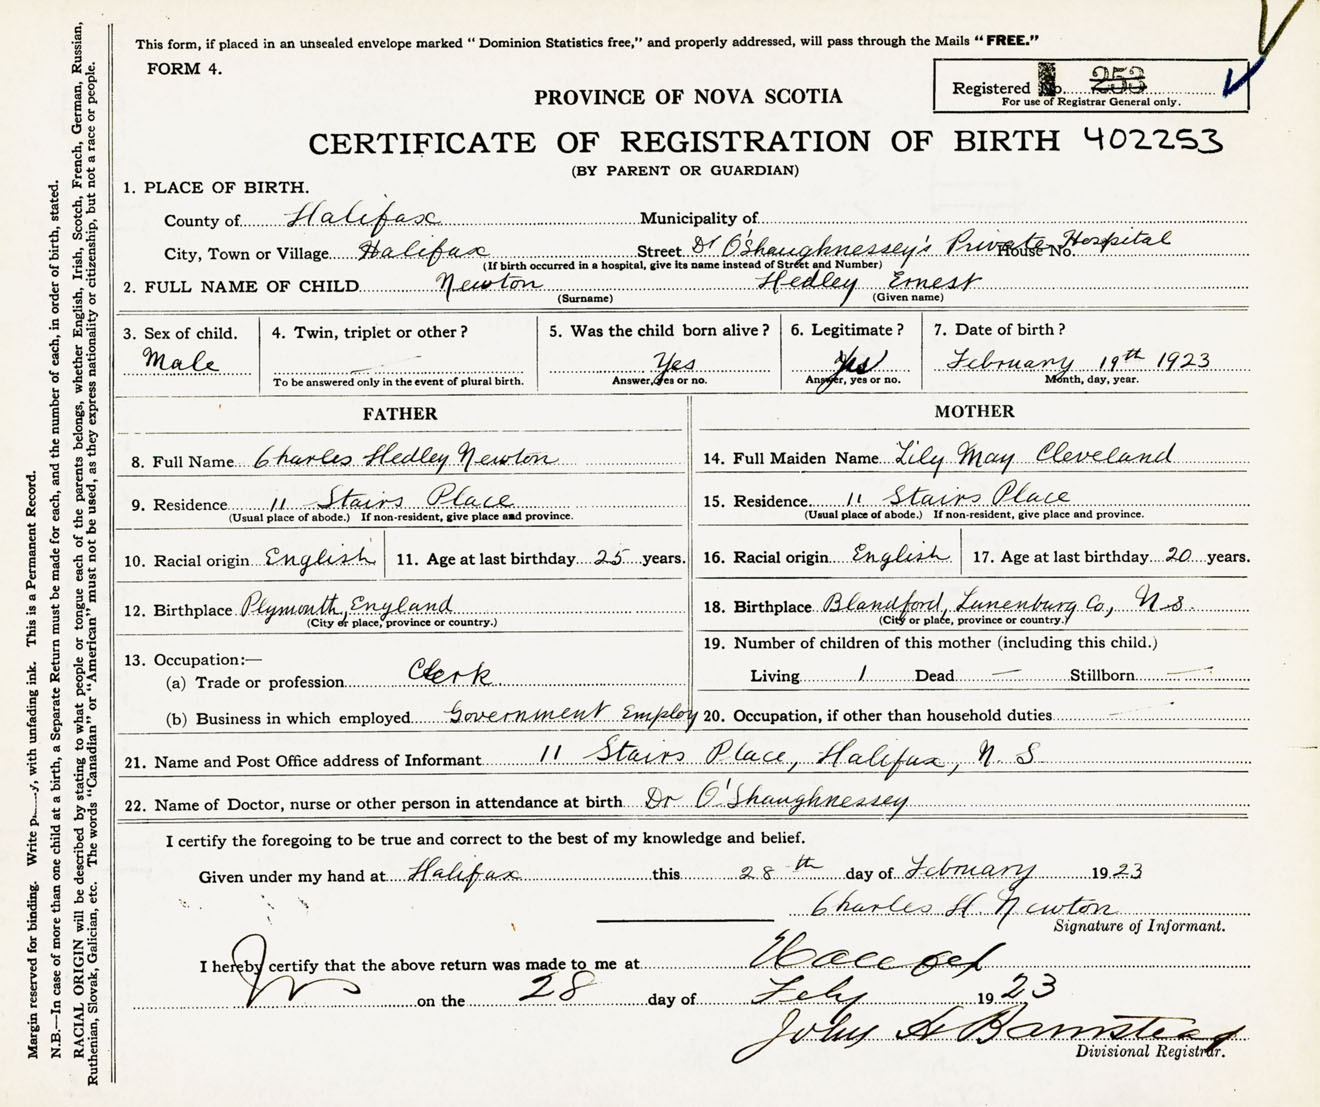 This form, if placed in an unsealed envelope marked " Dominion Statistics free," and properly addressed, will pass through the Mails " FREE."
FORM 4.
Registered No. 253
For use of Registrar General only.
PROVINCE OF NOVA SCOTIA
CERTIFICATE OF REGISTRATION OF BIRTH 402253
(BY PARENT OR GUARDIAN)
1. PLACE OF BIRTH.
County of Halifax Municipality of
City, Town or Village Halifax Street Dr O'Shaughnessey's Private Hospital House No.
(If birth occurred in a hospital, give its name instead of Street and Number)
2. FULL NAME OF CHILD Newton Hedley Ernest
(Surname) (Given name)
3. Sex of child. 4. Twin, triplet or other? 5. Was the child born alive? 6. Legitimate? 7. Date of birth?
Male Yes Yes February 19th 1923
To be answered only in the event of plural birth. Answer, yes or no. Answer, yes or no. Month, day, year.
FATHER MOTHER
8. Full Name Charles Hedley Newton 14. Full Maiden Name Lily May Cleveland
9. Residence 11 Stairs Place 15. Residence 11 Stairs Place
(Usual place of abode.) If non-resident, give place and province. (Usual place of abode.) If non-resident, give place and province.
10. Racial origin English 11. Age at last birthday 25 years. 16. Racial origin English 17. Age at last birthday 20 years.
12. Birthplace Plymouth, England 18. Birthplace Blandford, Lunenburg Co, N S.
(City or place, province or country.) (City or place, province or country.)
13. Occupation:— 19. Number of children of this mother (including this child.)
(a) Trade or profession Clerk Living 1 Dead — Stillborn —
(b) Business in which employed Government Employ 20. Occupation, if other than household duties —
21. Name and Post Office address of Informant 11 Stairs Place, Halifax, N. S
22. Name of Doctor, nurse or other person in attendance at birth Dr O'Shaughnessey
I certify the foregoing to be true and correct to the best of my knowledge and belief.
Given under my hand at Halifax this 28th day of February 1923
Charles H Newton
Signature of Informant.
I hereby certify that the above return was made to me at Halifax
on the 28 day of Feby 1923
John A Barnstead
Divisional Registrar.
Margin reserved for binding. Write with unfading ink. This is a Permanent Record.
N.B.—In case of more than one child at a birth, a Separate Return must be made for each, and the number of each, in order of birth, stated.
RACIAL ORIGIN will be described by stating to what people or tongue each of the parents belongs, whether English, Irish, Scotch, French, German, Russian,
Ruthenian, Slovak, Galician, etc. The words "Canadian" or "American" must not be used, as they express nationality or citizenship, but not a race or people.